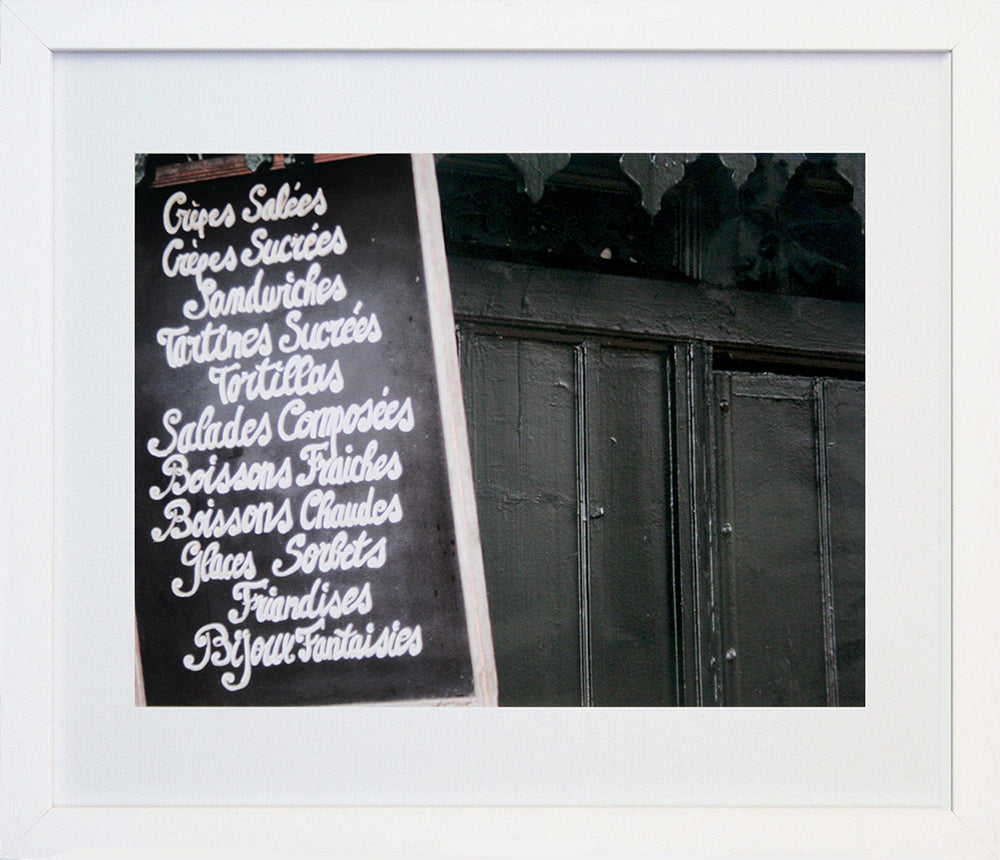 Crêpes Salées
Crêpes Sucrées
Sandwiches
Tartines Sucrées
Tortillas
Salades Composées
Boissons Fraiches
Boissons Chaudes
Glaces Sorbets
Friandises
Bijoux Fantaisies